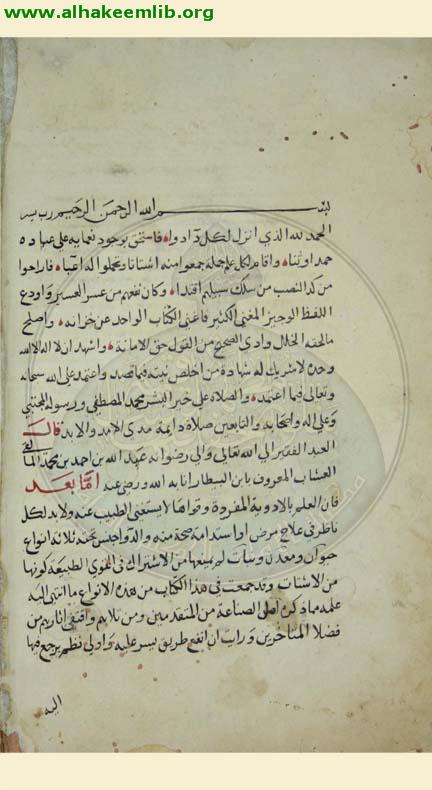 www.alhakeemlib.org
بسم الله الرحمن الرحيم رب يسر
الحمد لله الذي انزل لكل دآء دواء فاستحق بوجود نعمايه على عباده
حمدا وثناء واقام لكل علم جملة جمعوا منه اشتاتا وتحملوا له اعباء فاراحوا
من كد النصب من سلك سبيلهم اقتداء وكان نفعهم من عسر العسير واودع
اللفظ الوجيز المغني الكثير فاغنى الكتاب الواحد عن خزانه واصلح
مالحقه الخلل وادى الصحيح من القول حق الامانة واشهد ان لا اله الا الله
وحده لا شريك له شهادة من اخلص نيته فيما قصد واعتمد على الله سبحانه
وتعالى فيما اعتمد والصلاة على خير البشر محمد المصطفى ورسوله المجتبى
وعلى اله واصحابه والتابعين صلاة دايمة مدى الامد والابد قال
العبد الفقير الى الله تعالى والى رضوانه عبد الله بن احمد بن محمد المالقي
العشاب المعروف بابن البيطار اثابه الله ورضى عنه اما بعد
فان العلم بالادوية المفردة وقواها لا يستغنى الطبيب عنه ولا بد لكل
ناظر في علاج مرض او استدامة صحة منه والدواء جنس تحته ثلاثة انواع
حيوان ومعدن ونبات لم يمنعها من الاشتراك في القوى الطبيعة كونها
من الاشتات وقد جمعت في هذا الكتاب من هذه الانواع ما انتهى اليه
علمه مما ذكره اهل الصناعة من المتقدمين ومن تلاهم واقتفى اثارهم من
فضلا المتاخرين ورايت ان انفع طريق يسر عليه واولى نظم يرجع فيها
اليه